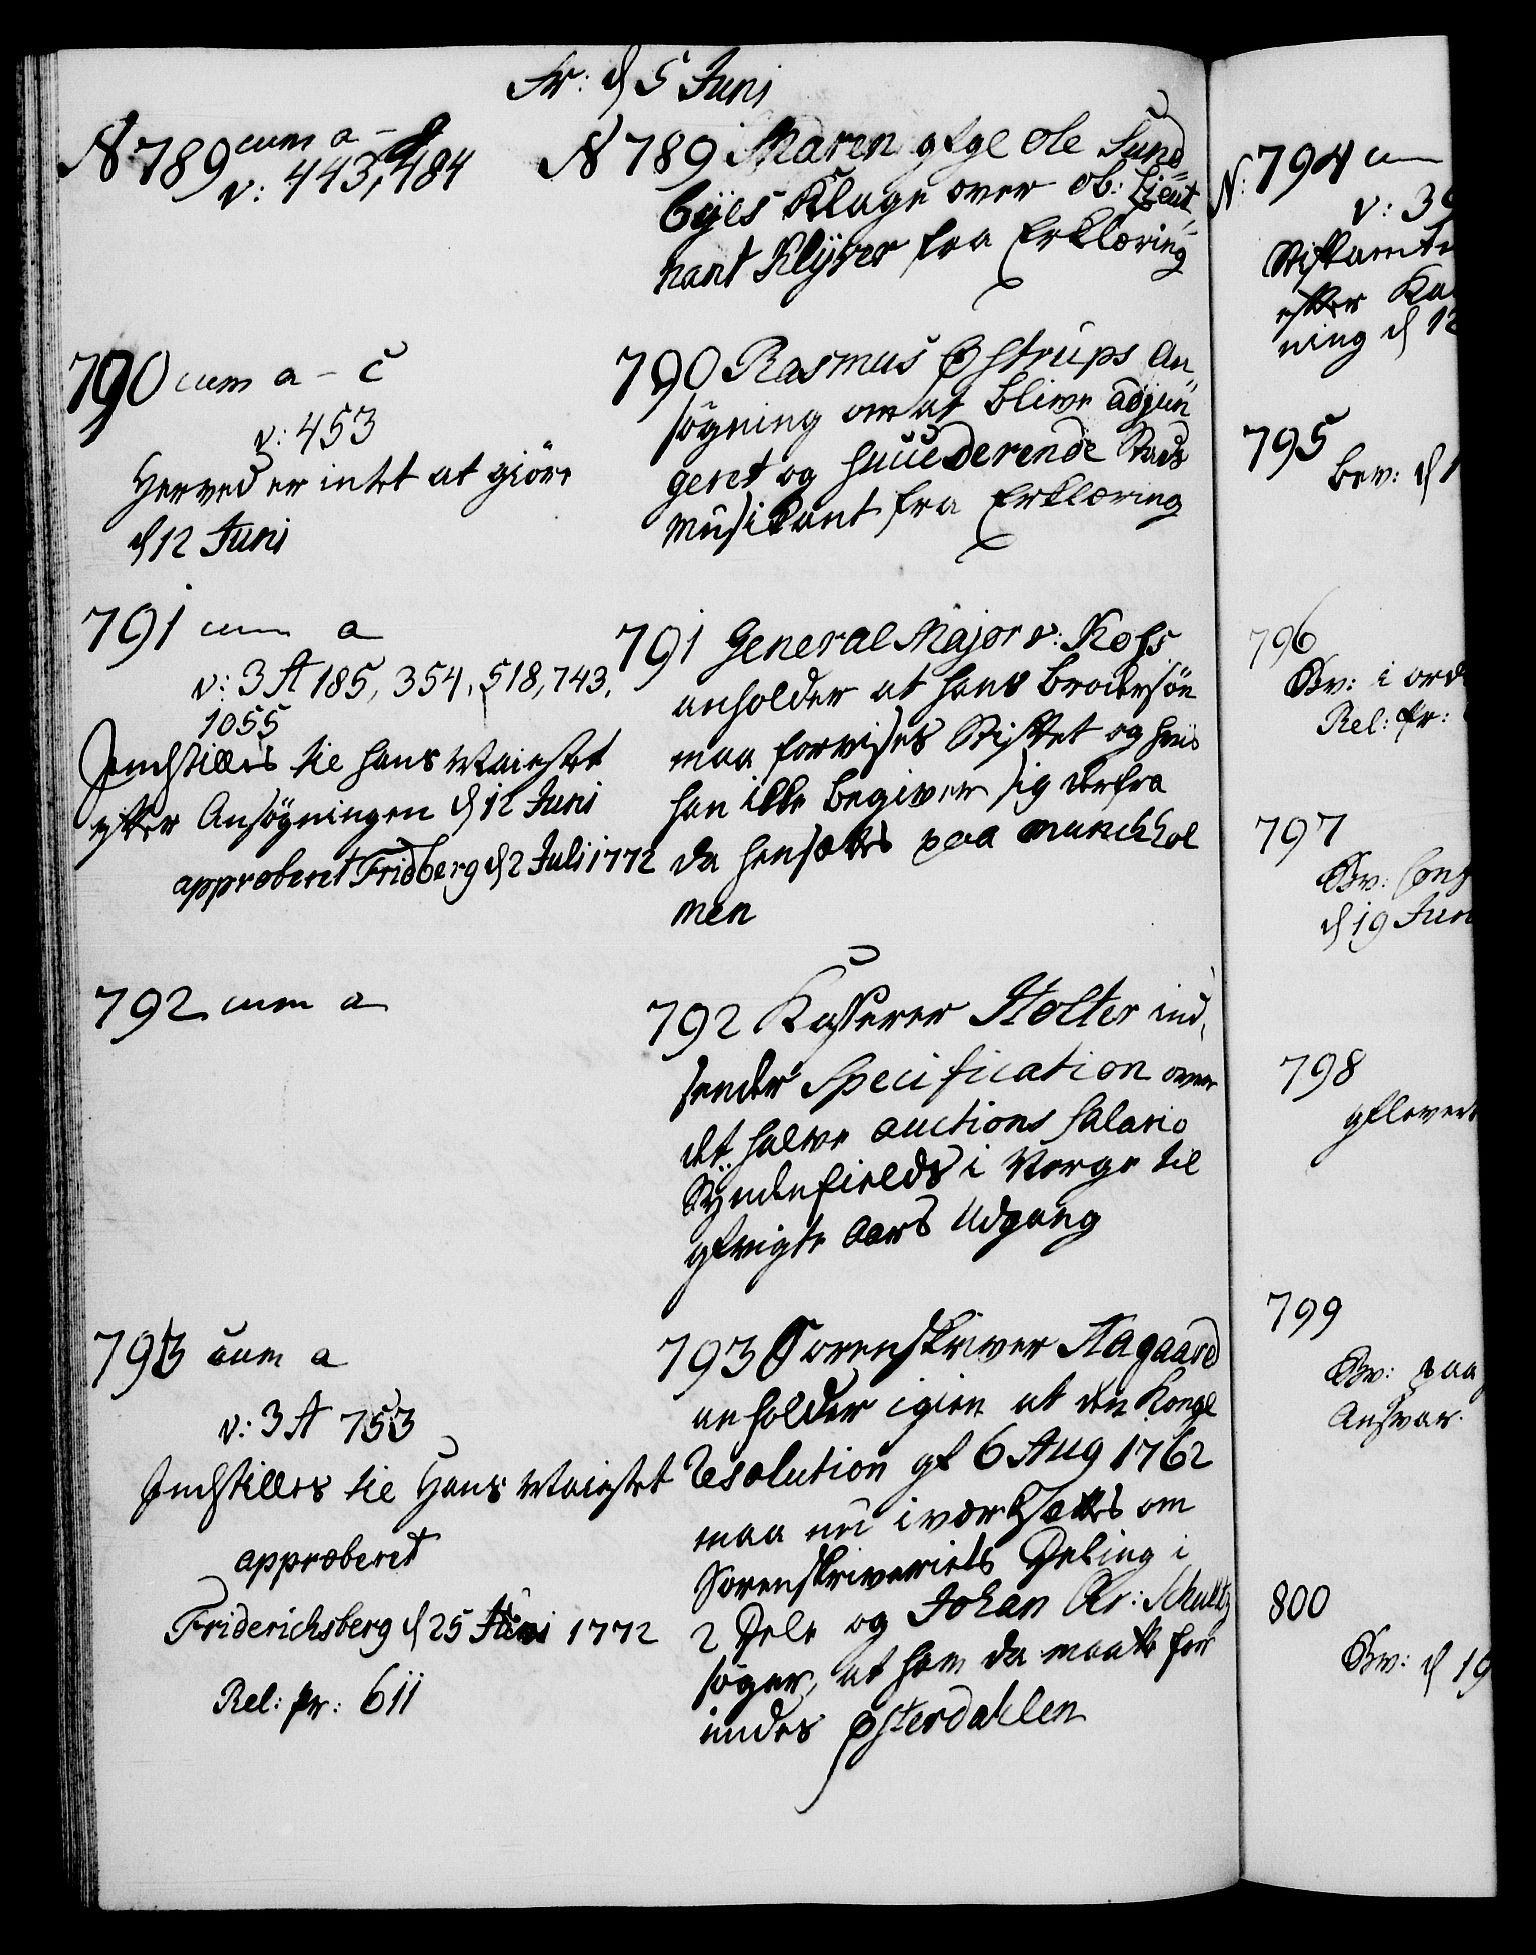 Fr: d 5 Juni
N 789 cum a - d
v: 443, 484
N 789 Maren gfge Ole Sund-
byes Klage over Ob: Lieut-
nant Klyver fra Erklæring
790 cum a - c
v: 453
Herved er intet at giöre
d 12 Juni
790 Rasmus Østrups An
søgning om at blive adjun
geret og succederende Stads
Musikant fra Erklæring
791 cum a
v: 3 A 185, 354, 518, 743,
1055
Indstilles til Hans Maiestet
efter Ansøgningen d 12 Juni
approberet Fridberg d 2 Juli 1772
791 General Major v: Kofs
anholder at hans Brodersön
maa forvises Stiftet og hvis
han ikke begiver sig derfra
da hensættes paa Munchhol
men
792 cum a
792 Kasserer Holter ind,
sender Specification over
det halve Auctions Salario
Syndenfields i Norge til
afvigte Aars Udgang
793 cum a
v: 3 A 753
Indstilles til Hans Maiestet
approberet
Friderichsberg d 25 Juni 1772
Rel: Pr: 611
793 Sorenskriver Aagaard
anholder igien at den Kongl
Resolution af 6 Aug 1762
maa nu i værksættes om
Sorenskriveriets Deling i
2 Dele og Johan Chr: Schultz
søger, at ham da maatte for
undes Østerdahlen
N: 794 cum
v: 39
Stiftamtm
efter Ka
ning d 12
795
Bev: d 1
796
Bev: i ord
Rel: Pr:
797
Bev: Conf
d 19 Jun
798
afleveret
799
Bev: paa
Ansvar.
800
Bev: d 19